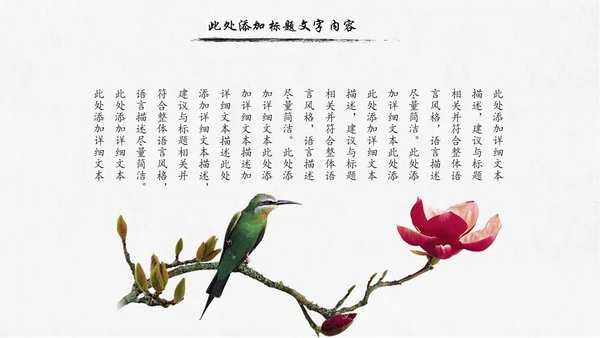 此处添加标题文字内容
此处添加详细文本
描述，建议与标题
相关并符合整体语
言风格，语言描述
尽量简洁。此处添
加详细文本此处添
此处添加详细文本
描述，建议与标题
相关并符合整体语
言风格，语言描述
尽量简洁。此处添
加详细文本此处添
加详细文本描述加
详细文本描述此处
添加详细文本描述，
建议与标题相关并
符合整体语言风格，
语言描述尽量简洁。
此处添加详细文本
此处添加详细文本